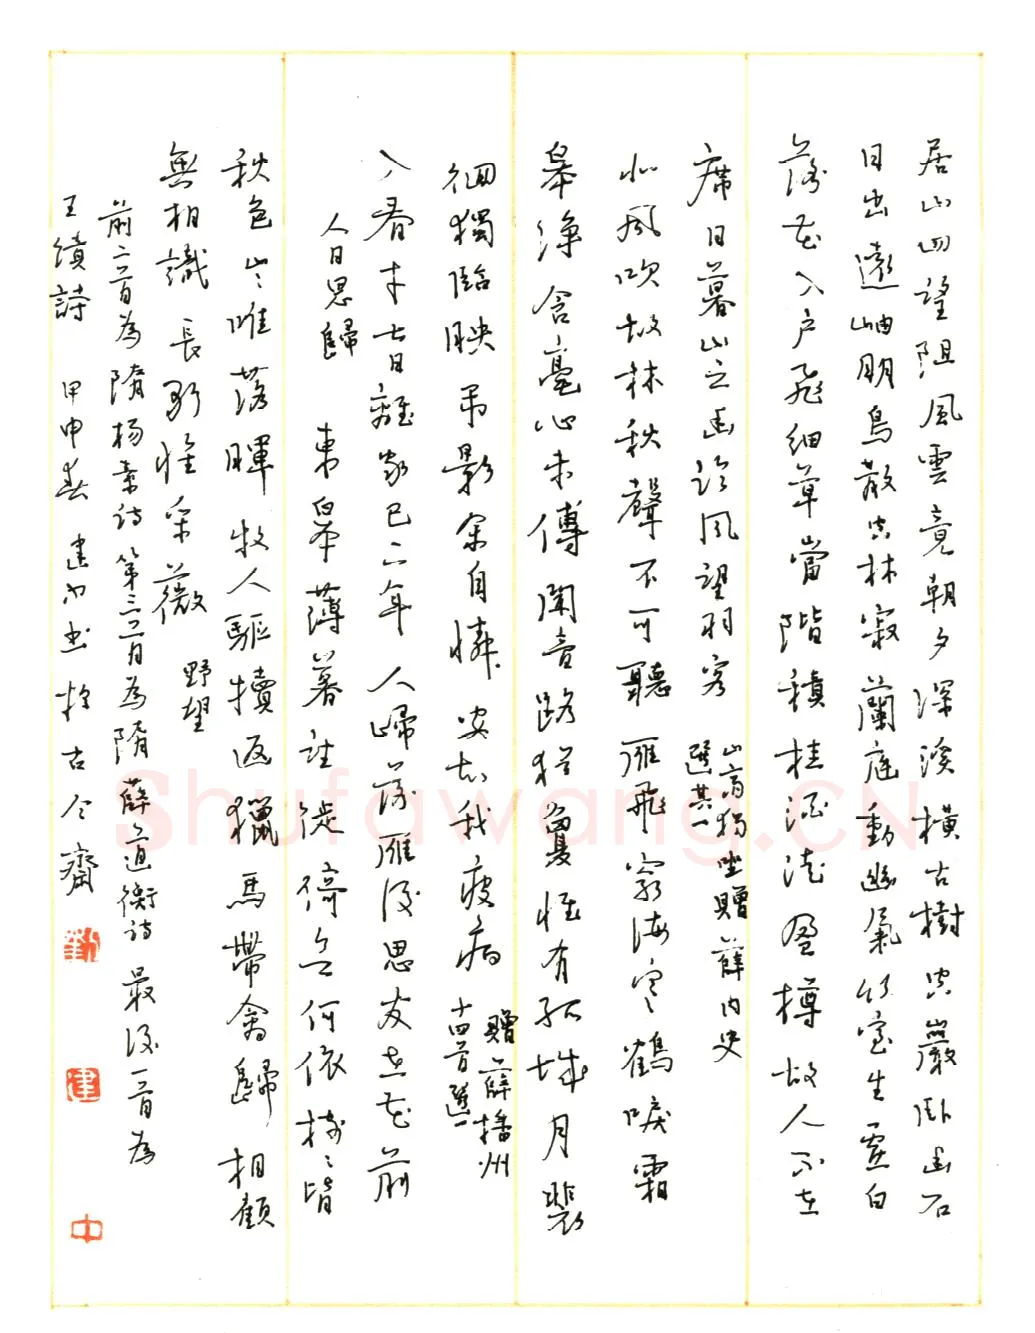 居山四望阻風雲竟朝夕深溪橫古樹空巖臥幽石
日出遠岫明鳥散空林寂蘭庭動幽氣竹室生虛白
落花入戶飛細草當階積桂酒徒盈樽故人不在
席日暮山之幽臨風望羽客
山齋獨坐贈薛內史
選其一
北風吹故林秋聲不可聽雁飛窮海寒鶴唳霜
皋淨含毫心未傳聞音路猶敻惟有孤城月裴
徊獨臨映吊影余自憐安知我疲病
贈薛播州
十四首選一
入春才七日離家已二年人歸落雁後思發在花前
人日思歸
東皋薄暮望徙倚欲何依樹樹皆
秋色山山唯落暉牧人驅犢返獵馬帶禽歸相顧
無相識長歌懷采薇
野望
前二首為隋楊素詩第三首為隋薛道衡詩最後一首為
王績詩
甲申春建中書於古今齋
Shufawang.CN